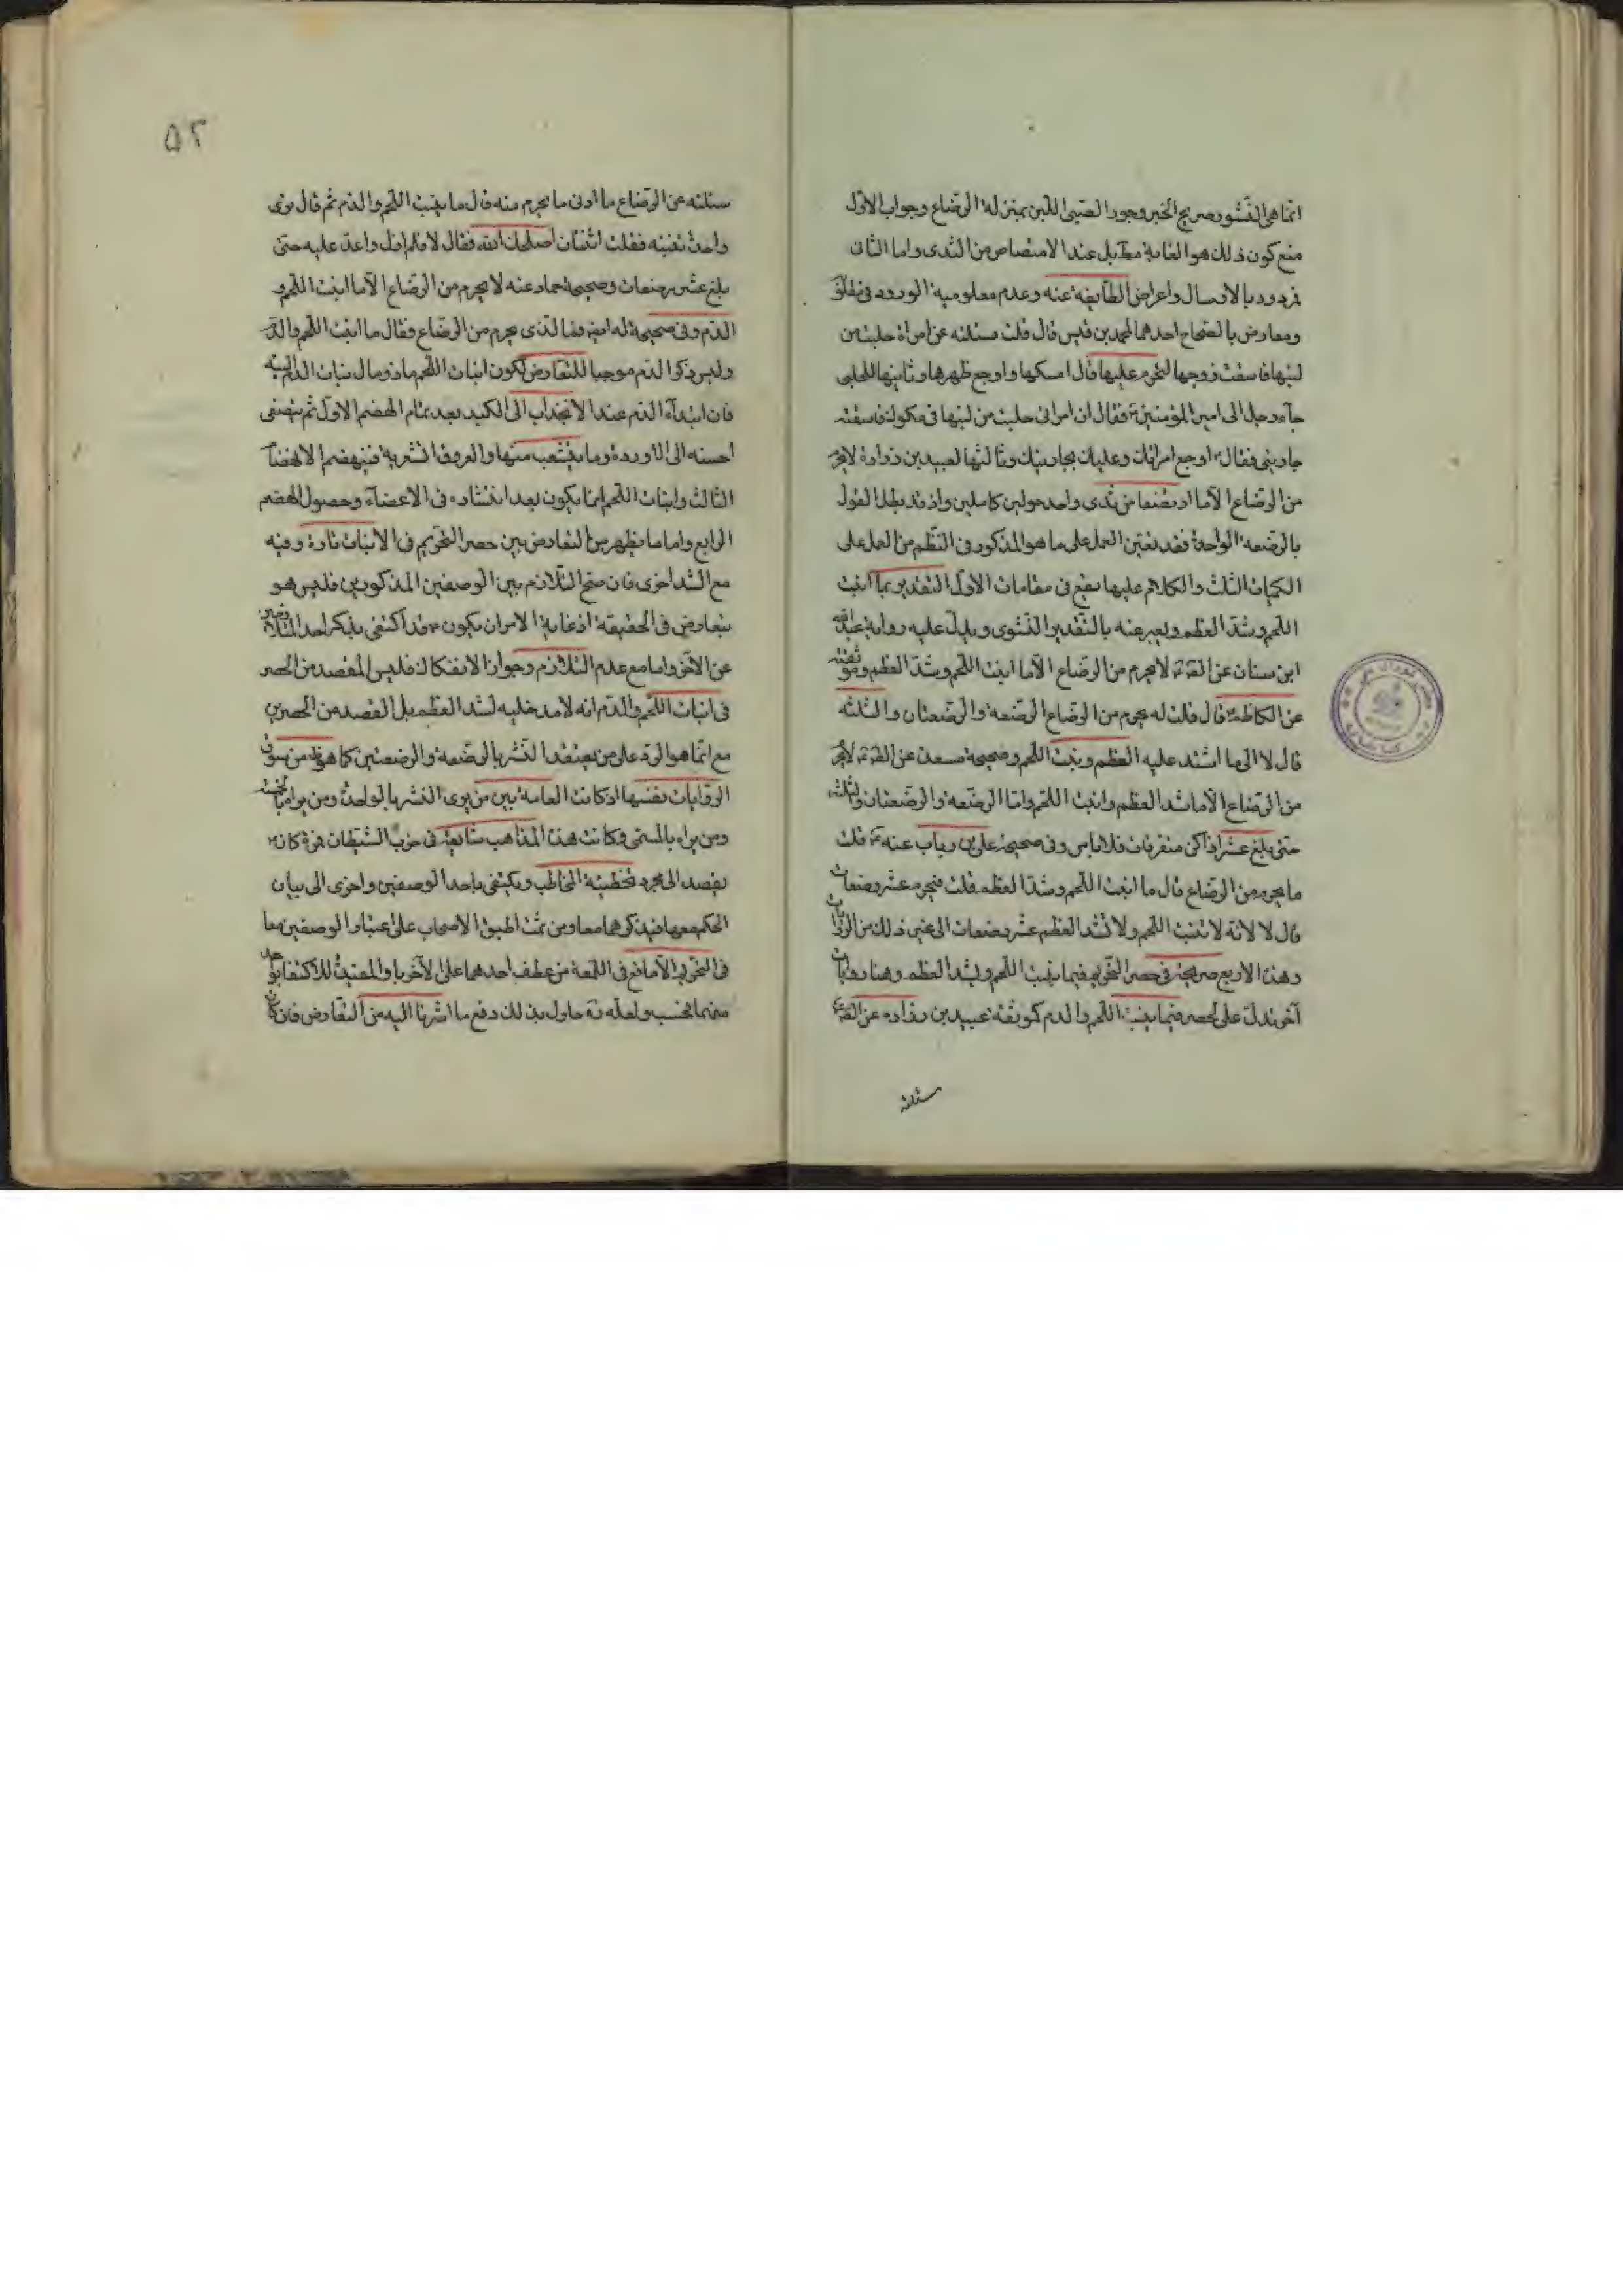 انما هی النشو وصریح الخبر وجور الصبی اللبن بمنزلة الرضاع وجواب الاول
منع کون ذلک هو الغایة مط بل عند الامتصاص من الثدی واما الثانی
فردود بالارسال واعراض الطایفة عنه وعدم معلومیة الورود فی
ومعارض بالصحاح احدهما لمحمد بن قیس قال قلت سئلته عن امراة حلبت من
لبنها فاسقت زوجها لتحرم علیها قال امسکها واوجع ظهرها وثانیها للحلبی
جآء رجل الی امیر المؤمنین فقال ان امراتی حلبت من لبنها فی مکوک فاسقته
جاریتی فقال اوجع امراتک وعلیک بجاریتک وثالثها لعبید بن زرارة لا یحرم
من الرضاع الا ما ارتضعا من ثدی واحد حولین کاملین واذ قد بطل القول
بالرضعة الواحدة فقد تعین العمل علی ما هو المذکور فی النظم من العمل علی
الکمیات الثلث والکلام علیها یقع فی مقامات الاول التقدیر بما انبت
اللحم وشد العظم ویعبر عنه بالتقدیر النشوی ویدل علیه روایة عبد الله
ابن سنان عن لا یحرم من الرضاع الا ما انبت اللحم وشد العظم وموثقته
عن الکاظم قال قلت له یحرم من الرضاع الرضعة والرضعتان والثلثه
قال لا الی ما اشتد علیه العظم ونبت اللحم وصحیحة مسعدة عن لا یحرم
من الرضاع الا ما شد العظم وانبت اللحم واما الرضعة والرضعتان والثلث
حتی یبلغ عشرا اذا کن متفرقات فلا باس وفی صحیحة علی بن ریاب عنه قلت
ما یحرم من الرضاع قال ما انبت اللحم وشد العظم قلت فیحرم عشر رضعات
قال لا لانه لا تنبت اللحم ولا تشد العظم عشر رضعات الی غیر ذلک من الروایات
وهذا الاربع صریحة فی حصر التحریم فیما ینبت اللحم ویشد العظم وهنا روایات
آخر تدل علی الحصر فیما ینبت اللحم والدم کموثقة عبید بن زراره عن
سئلته
۵۲
سئلته عن الرضاع ما ادنی ما یحرم منه قال ما ینبت اللحم والدم ثم قال تری
واحدة تنبته فقلت اثنتان اصلحک الله فقال لا فلم ازل واعد علیه حتی
بلغ عشر رضعات وصحیحة حماد عنه لا یحرم من الرضاع الا ما انبت اللحم و
الدم وفی صحیحة له ایض فما الذی یحرم من الرضاع فقال ما انبت اللحم والدم
ولیس ذکر الدم موجبا للتعارض لکون انبات اللحم مآل نبات الدم
فان ابتدآء الدم عند الانجذاب الی الکبد بعد تمام الهضم الاول ثم یتصفی
احسنه الی الاوردة وما یتشعب منها والعروق الشعریة فینهضم الانهضام
الثالث وانبات اللحم انما یکون بعد انتشاره فی الاعضآء وحصول الهضم
الرابع واما ما یظهر من التعارض بین حصر التحریم فی الانبات تارة وفیه
مع الشد اخری فان صح التلازم بین الوصفین المذکورین فلیس هو
بتعارض فی الحقیقة اذ غایة الامر ان یکون قد اکتفی بذکر احد المتلازمین
عن الاخر واما مع عدم التلازم وجواز الانفکاک فلیس المقصد من الحصر
فی انبات اللحم والدم انه لا مدخلیه لشد العظم بل القصد من الحصرین
مع انما هو الرد علی من یعتقد النشر بالرضعة والرضعتین کما هو ظ من سوق
الروایات نفسها اذ کانت العامه بین من یری النشر بالواحدة ومن یراه بالخمس
ومن یراه بالمسمی وکانت هذه المذاهب شایعة فی حزب الشیطان فمرة کان
یقصد الی مجرد تخطئة المخاطب ویکتفی باحد الوصفین واخری الی بیان
الحکم معها فیذکرهما معا ومن ثمت اطبق الاصحاب علی اعتبار الوصفین معا
فی التحریم الا ما فی اللمعة من عطف احدهما علی الآخر باو المفیدة للاکتفا بواحد
منهما فحسب ولعله حاول بذلک دفع ما اشرنا الیه من التعارض فان کان